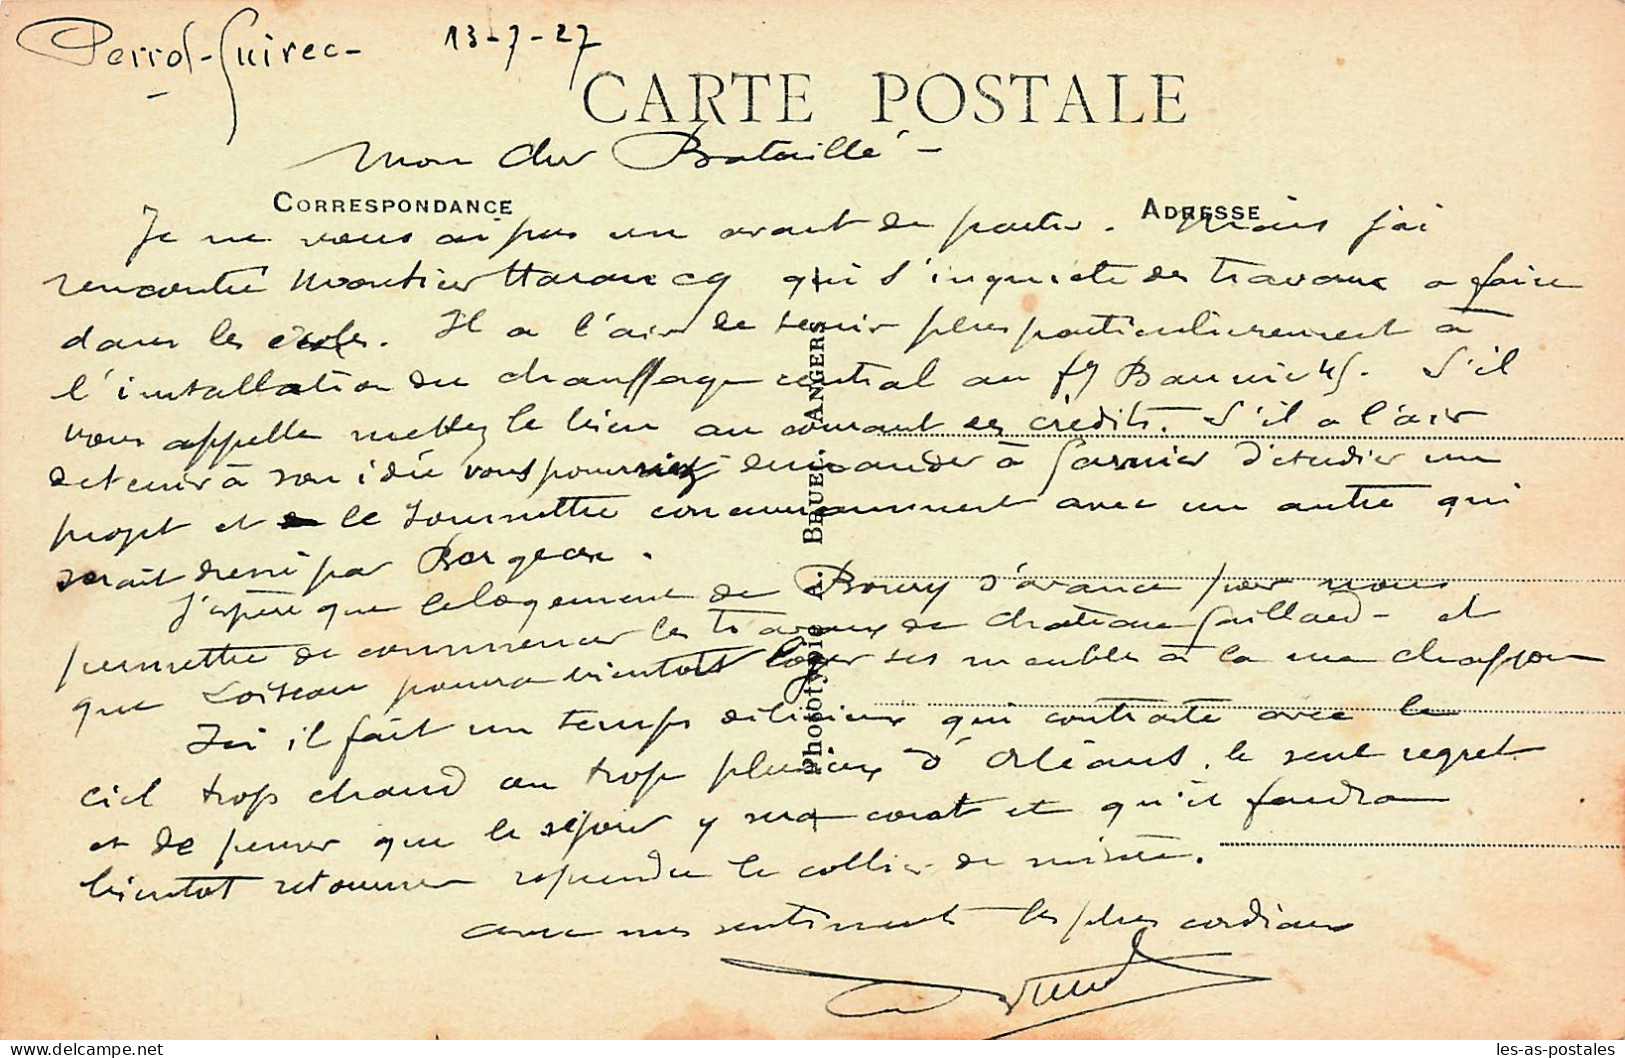 Perros-Guirec- 13-7-27
CARTE POSTALE
Mon cher Bataille -
CORRESPONDANCE
ADRESSE
Je ne vous ai pas vu avant de partir. Mais j'ai
rencontré Monsieur qui s'inquiète des travaux a faire
dans les écoles. Il a l'air de tenir plus particulièrement à
l'installation du chauffage central au fg Bannier 45. S'il
vous appelle mettez le bien au courant des crédits. S'il a l'air
de tenir à son idée vous pourriez demander à Garnier d'étudier un
projet et le soumettre concurremment avec un autre qui
serait dressé par Borgeau.
J'espère que le logement de Boury s'avance pour nous
permettre de commencer les travaux de Chateau Gaillard - et
que Loiseau pourra bientôt loger ses meubles à la rue Chappon
Ici il fait un temps délicieux qui contraste avec le
ciel trop chaud ou trop pluvieux d'Orléans. le seul regret
et de penser que le séjour y sera court et qu'il faudra
bientot retourner reprendre le collier de misère.
avec mes sentiments les plus cordiaux
Phototypie A. BRUEL - ANGERS
les-as-postales